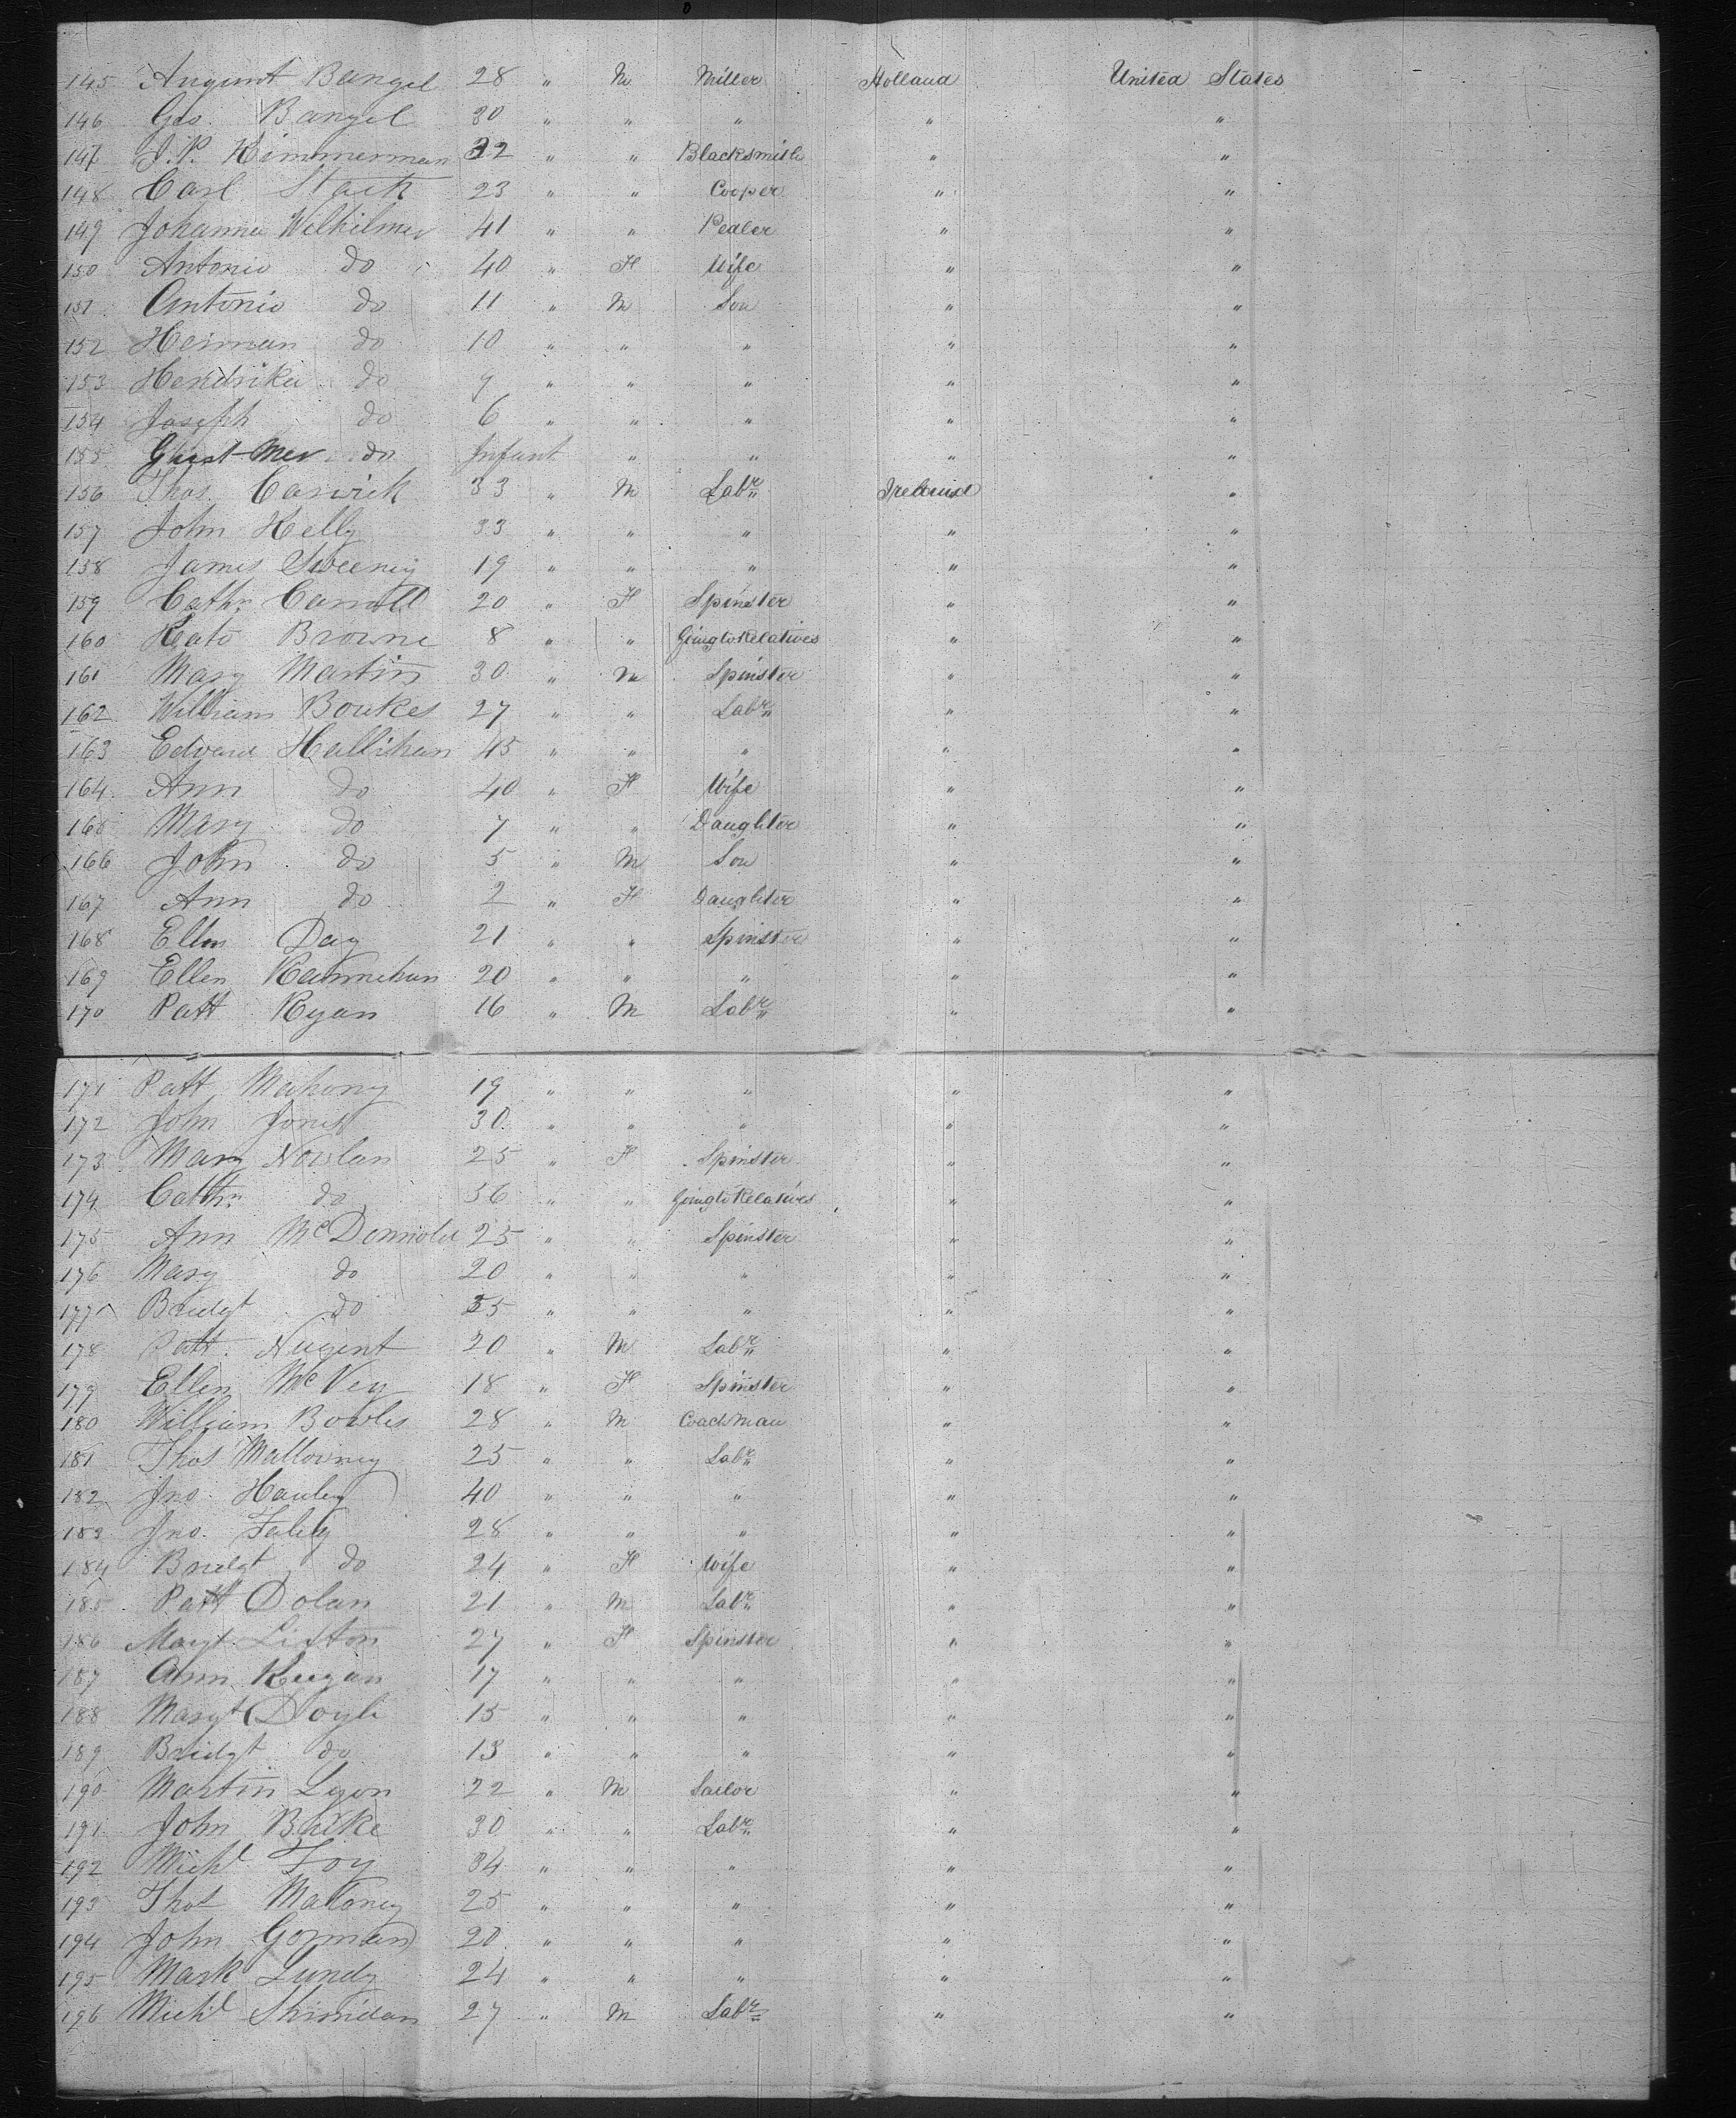 145 August Bangel 28 " M Miller Holland United States
146 Geo. Bangel 30 " " " " "
147 J. P. Kimmerman 32 " " Blacksmith " "
148 Carl Stack 23 " " Cooper " "
149 Johanna Wilhilmer 41 " " Pedler " "
150 Antonio do 40 " F Wife " "
151 Antonio do 11 " M Son " "
152 Herman do 10 " " " " "
153 Hendrika do 9 " " " " "
154 Joseph do 6 " " " " "
155 do Infant " " " "
156 Thos. Carwick 33 " M Labr Ireland "
157 John Kelly 33 " " " " "
158 James Sweeney 19 " " " " "
159 Cathn Carroll 20 " F Spinster " "
160 Kate Browne 8 " " Going to Relatives " "
161 Mary Martin 30 " M Spinster " "
162 William Boukes 27 " " Labr " "
163 Edward Hallihan 45 " " " " "
164 Ann do 40 " F Wife " "
165 Mary do 7 " " Daughter " "
166 John do 5 " M Son " "
167 Ann do 2 " F Daughter " "
168 Ellen Day 21 " " Spinster " "
169 Ellen Rannihan 20 " " " " "
170 Patt Ryan 16 " M Labr " "
171 Patt Mahony 19 " " " " "
172 John Jones 30 " " " " "
173 Mary Nowlan 25 " F Spinster " "
174 Cathn do 36 " " Going to Relatives " "
175 Ann McDonnold 25 " " Spinster " "
176 Mary do 20 " " " " "
177 Bridgt do 35 " " " " "
178 Patt. Nugent 20 " M Labr " "
179 Ellen McVey 18 " F Spinster " "
180 William Bowles 28 " M Coachman " "
181 Thos Mallowney 25 " " Labr " "
182 Jno. Hanley 40 " " " " "
183 Jno. Faley 28 " " " " "
184 Bridgt do 24 " F Wife " "
185 Patt Dolan 21 " M Labr " "
186 Margt. Liston 27 " F Spinster " "
187 Ann Keegan 17 " " " " "
188 Margt Doyle 15 " " " " "
189 Bridgt do 13 " " " " "
190 Martin Lyon 22 " M Sailor " "
191 John Burke 30 " " Labr " "
192 Michl Foy 34 " " " " "
193 Thos Maloney 25 " " " " "
194 John Gorman 20 " " " " "
195 Mark Lundy 24 " " " " "
196 Michl Shmidan 27 " M Labr " "